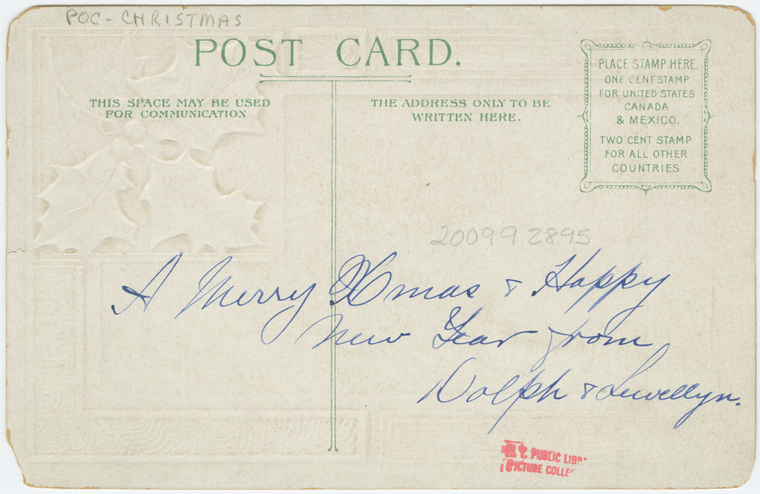 POC-CHRISTMAS
POST CARD.
THIS SPACE MAY BE USED
FOR COMMUNICATION
THE ADDRESS ONLY TO BE
WRITTEN HERE.
PLACE STAMP HERE.
ONE CENT STAMP
FOR UNITED STATES
CANADA
& MEXICO.
TWO CENT STAMP
FOR ALL OTHER
COUNTRIES
200992895
A Merry Xmas & Happy
New Year from
Dolph & Lewellyn.
N. Y. PUBLIC LIBR
PICTURE COLLE